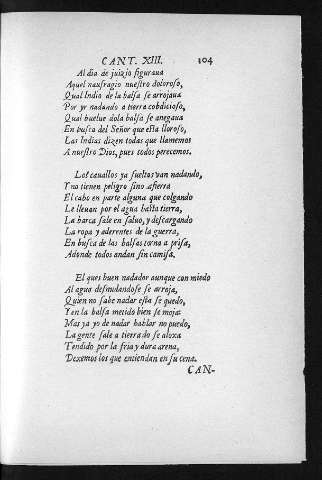 CANT. XIII. 104
Al dia de juizio figuraua
Aquel naufragio nuestro doloroso,
Qual Indio de la balsa se arrojaua
Por yr nadando a tierra cobdicioso,
Qual buelue dola balsa se anegaua
En busca del Señor que esta lloroso,
Las Indias dizen todas que llamemos
A nuestro Dios, pues todos perecemos.
Los cauallos ya sueltos van nadando,
Y no tienen peligro sino afierra
El cabo en parte alguna que colgando
Le lleuan por el agua hasta tierra,
La barca sale en saluo, y descargando
La ropa y aderentes de la guerra,
En busca de las balsas torna a prisa,
Adonde todos andan sin camisa.
El ques buen nadador aunque con miedo
Al agua desnudandose se arroja,
Quien no sabe nadar esta se quedo,
Y en la balsa metido bien se moja:
Mas ya yo de nadar hablar no puedo,
La gente sale a tierra do se aloxa
Tendido por la fria y dura arena,
Dexemos los que entiendan en su cena.
CAN-